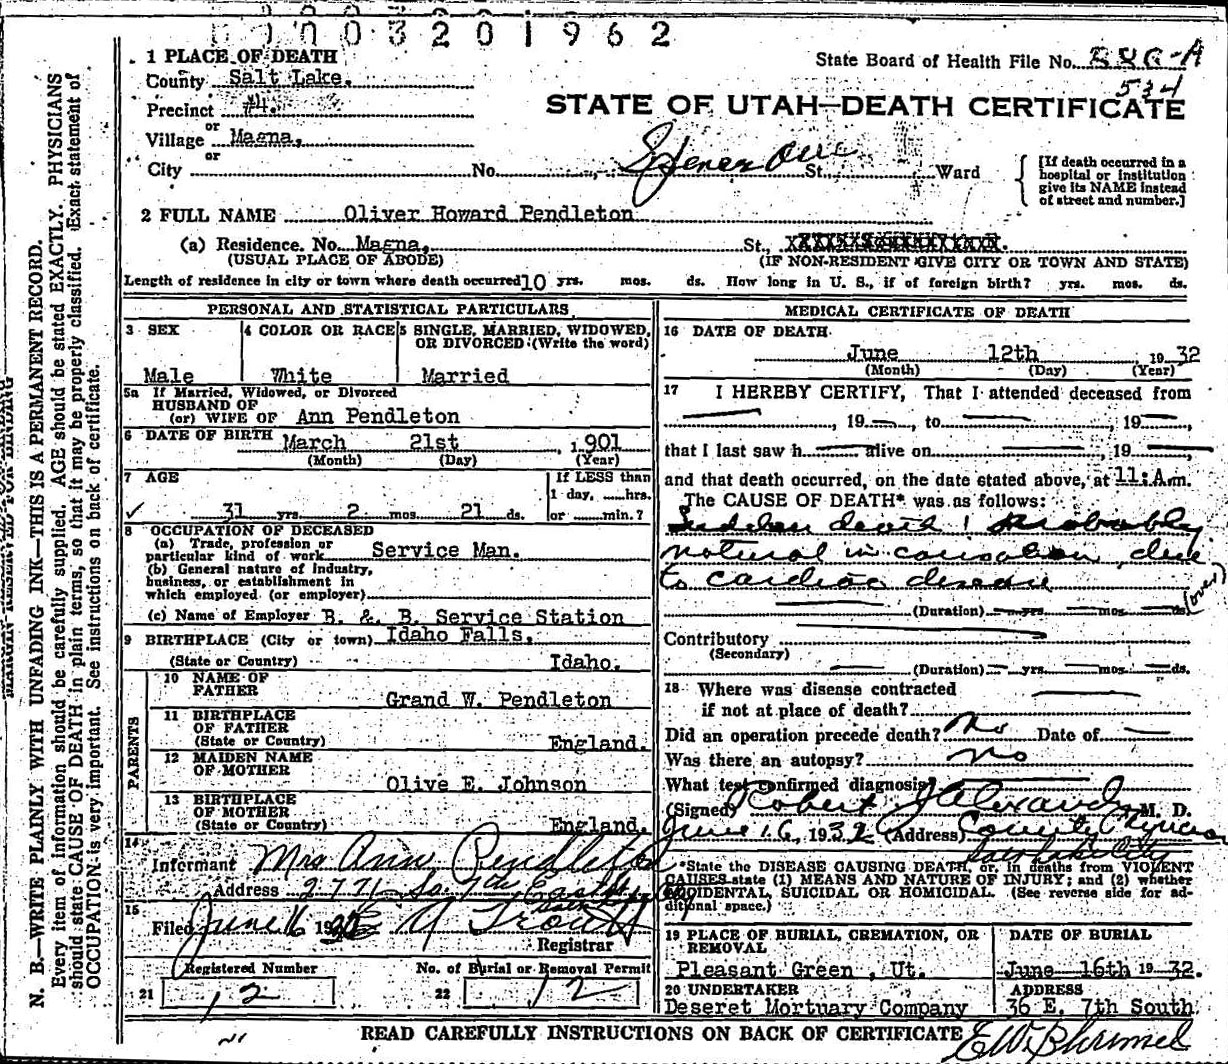 0003201962
1 PLACE OF DEATH
State Board of Health File No.
534
County Salt Lake.
Precinct #4.
STATE OF UTAH—DEATH CERTIFICATE
or
Village Magna,
or
City No. Spencer Ave St. Ward
[If death occurred in a hospital or institution give its NAME instead of street and number.]
2 FULL NAME Oliver Howard Pendleton
(a) Residence. No. Magna, St.,
(USUAL PLACE OF ABODE) (IF NON-RESIDENT GIVE CITY OR TOWN AND STATE)
Length of residence in city or town where death occurred 10 yrs. mos. ds. How long in U. S., if of foreign birth? yrs. mos. ds.
PERSONAL AND STATISTICAL PARTICULARS
3 SEX 4 COLOR OR RACE 5 SINGLE, MARRIED, WIDOWED,
OR DIVORCED (Write the word)
Male White Married
5a If Married, Widowed, or Divorced
HUSBAND OF
(or) WIFE OF Ann Pendleton
6 DATE OF BIRTH March 21st, 1901
(Month) (Day) (Year)
7 AGE If LESS than
1 day, hrs.
31 yrs. 2 mos. 21 ds. or min.?
8 OCCUPATION OF DECEASED
(a) Trade, profession or
particular kind of work Service Man.
(b) General nature of industry,
business, or establishment in
which employed (or employer)
(c) Name of Employer B. & B. Service Station
9 BIRTHPLACE (City or town) Idaho Falls,
(State or Country) Idaho.
PARENTS
10 NAME OF
FATHER Grand W. Pendleton
11 BIRTHPLACE
OF FATHER
(State or Country) England.
12 MAIDEN NAME
OF MOTHER Olive E. Johnson
13 BIRTHPLACE
OF MOTHER
(State or Country) England.
14
Informant Mrs Ann Pendleton
Address 2771 So. 7th East
15
Filed June 16 19 Trout
Registrar
Registered Number No. of Burial or Removal Permit
21 12 22 12
MEDICAL CERTIFICATE OF DEATH
16 DATE OF DEATH
June 12th, 1932
(Month) (Day) (Year)
17 I HEREBY CERTIFY, That I attended deceased from
, 19 —, to —, 19 —,
that I last saw h — alive on —, 19 —
and that death occurred, on the date stated above, at 11:A.m.
The CAUSE OF DEATH* was as follows:
Sudden death! Probably
natural in causation, due
to cardiac disease
(over)
(Duration) — yrs. — mos. — ds.
Contributory
(Secondary)
(Duration) — yrs. — mos. — ds.
18 Where was disease contracted
if not at place of death?
Did an operation precede death? No Date of —
Was there an autopsy? No
What test confirmed diagnosis?
(Signed) Robert J Alexander M. D.
June 16, 1932 (Address) County Physician
Salt Lake City
*State the DISEASE CAUSING DEATH, or, in deaths from VIOLENT
CAUSES state (1) MEANS AND NATURE OF INJURY; and (2) whether
ACCIDENTAL, SUICIDAL OR HOMICIDAL. (See reverse side for ad-
ditional space.)
19 PLACE OF BURIAL, CREMATION, OR DATE OF BURIAL
REMOVAL
Pleasant Green, Ut. June 16th 1932.
20 UNDERTAKER ADDRESS
Deseret Mortuary Company 36 E. 7th South
READ CAREFULLY INSTRUCTIONS ON BACK OF CERTIFICATE
N. B.—WRITE PLAINLY WITH UNFADING INK—THIS IS A PERMANENT RECORD.
Every item of information should be carefully supplied. AGE should be stated EXACTLY. PHYSICIANS
should state CAUSE OF DEATH in plain terms, so that it may be properly classified. Exact statement of
OCCUPATION is very important. See instructions on back of certificate.